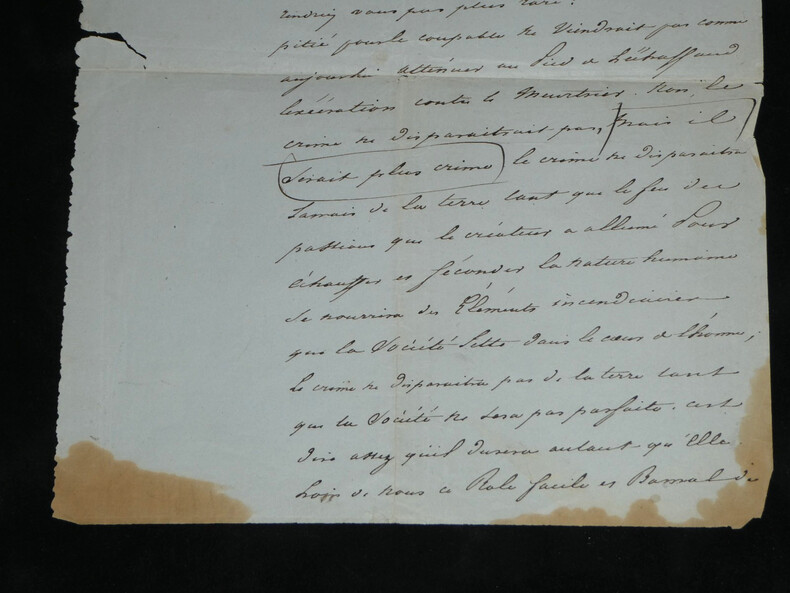 rendriez vous pas plus rare?
pitié pour le coupable ne Viendrait pas comme
aujourdui atténuer au Pied de L'échaffaud
l'exécration contre le Meurtrier. Non, le
crime ne disparaitrait pas, mais il
Serait plus crime le crime ne disparaitra
Jamais de la terre tant que le feu des
passions que le créateur a allumé Pour
échauffer et féconder la nature humaine
Se nourrira des Eléments incendiaires
que la Société Jette dans le cœur de l'homme;
Le crime ne disparaitra pas de la terre tant
que la Société ne Sera pas parfaite. c'est
dire assez qu'il durera autant qu'Elle.
Loin de nous ce Role facile et Bannal de